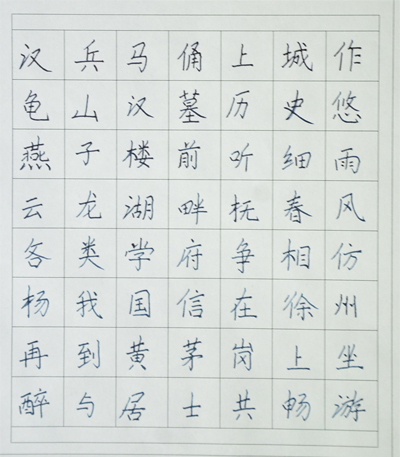 汉兵马俑上城作
龟山汉墓历史悠
燕子楼前听细雨
云龙湖畔抚春风
各类学府争相仿
杨我国信在徐州
再到黄茅岗上坐
醉与居士共畅游